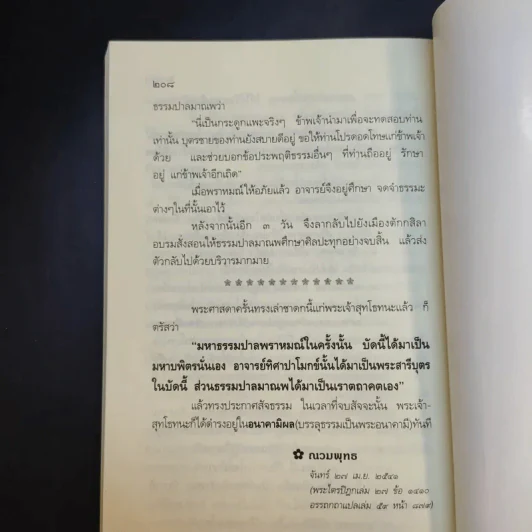 ๒๐๘
ธรรมปาลมาณพว่า
"นี่เป็นกระดูกแพะจริงๆ ข้าพเจ้านำมาเพื่อจะทดสอบท่าน
เท่านั้น บุตรชายของท่านยังสบายดีอยู่ ขอให้ท่านโปรดอดโทษแก่ข้าพเจ้า
ด้วย และช่วยบอกข้อประพฤติธรรมอื่นๆ ที่ท่านถืออยู่ รักษา
อยู่ แก่ข้าพเจ้าอีกเถิด"
เมื่อพราหมณ์ให้อภัยแล้ว อาจารย์จึงอยู่ศึกษา จดจำธรรมะ
ต่างๆในที่นั้นเอาไว้
หลังจากนั้นอีก ๓ วัน จึงลากลับไปยังเมืองตักกสิลา
อบรมสั่งสอนให้ธรรมปาลมาณพศึกษาศิลปะทุกอย่างจบสิ้น แล้วส่ง
ตัวกลับไปด้วยบริวารมากมาย
พระศาสดาครั้นทรงเล่าชาดกนี้แก่พระเจ้าสุทโธทนะแล้ว ก็
ตรัสว่า
"มหาธรรมปาลพราหมณ์ในครั้งนั้น บัดนี้ได้มาเป็น
มหาบพิตรนั่นเอง อาจารย์ทิศาปาโมกข์นั้นได้มาเป็นพระสารีบุตร
ในบัดนี้ ส่วนธรรมปาลมาณพได้มาเป็นเราตถาคตเอง"
แล้วทรงประกาศสัจธรรม ในเวลาที่จบสัจจะนั้น พระเจ้า-
สุทโธทนะก็ได้ดำรงอยู่ในอนาคามิผล(บรรลุธรรมเป็นพระอนาคามี)ทันที
ณวมพุทธ
จันทร์ ๒๗ เม.ย. ๒๕๔๑
(พระไตรปิฎกเล่ม ๒๗ ข้อ ๑๔๑๐
อรรถกถาแปลเล่ม ๕๙ หน้า ๘๗๑)